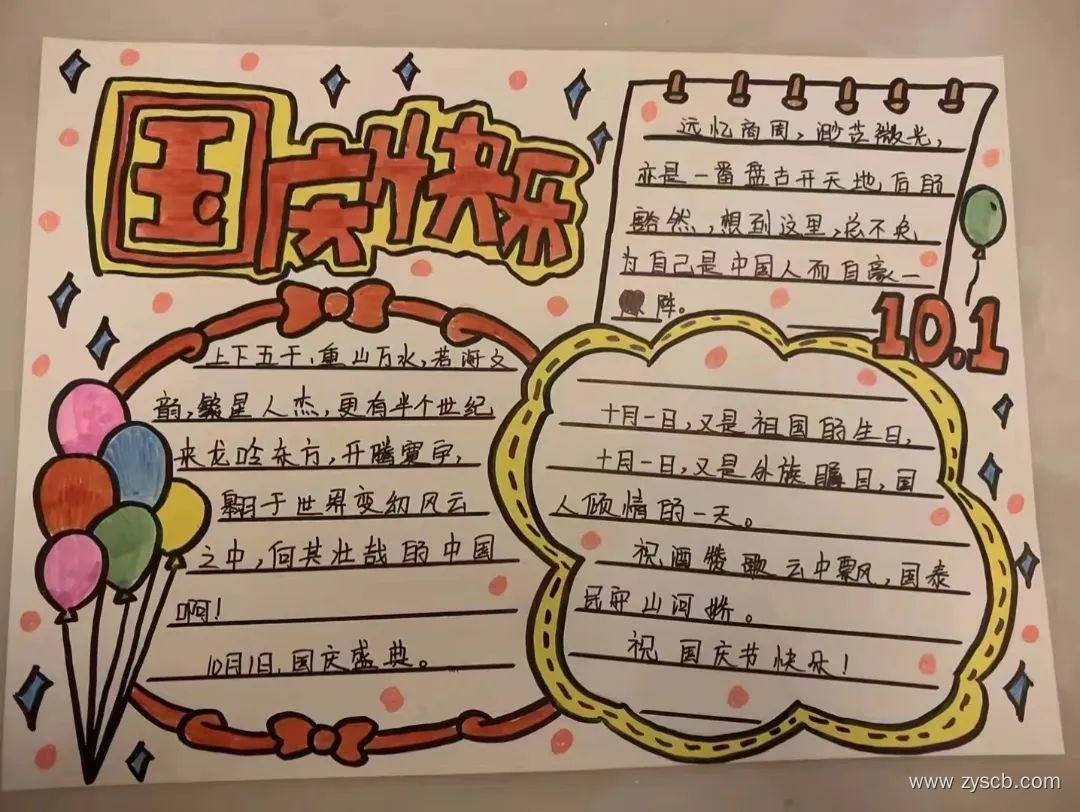 国庆快乐
远忆商周,渺茫微光,
亦是一番盘古开天地后的
豁然,想到这里,总不免
为自己是中国人而自豪一
阵。
10.1
上下五千,重山万水,若海文
韵,繁星人杰,更有半个世纪
来龙吟东方,开腾寰宇,
翱于世界变幻风云
之中,何其壮哉的中国
啊!
10月1日,国庆盛典。
十月一日,又是祖国的生日,
十月一日,又是外族瞩目,国
人倾情的一天。
祝酒赞歌云中飘,国泰
民安山河娇。
祝国庆节快乐!
www.zyscb.com